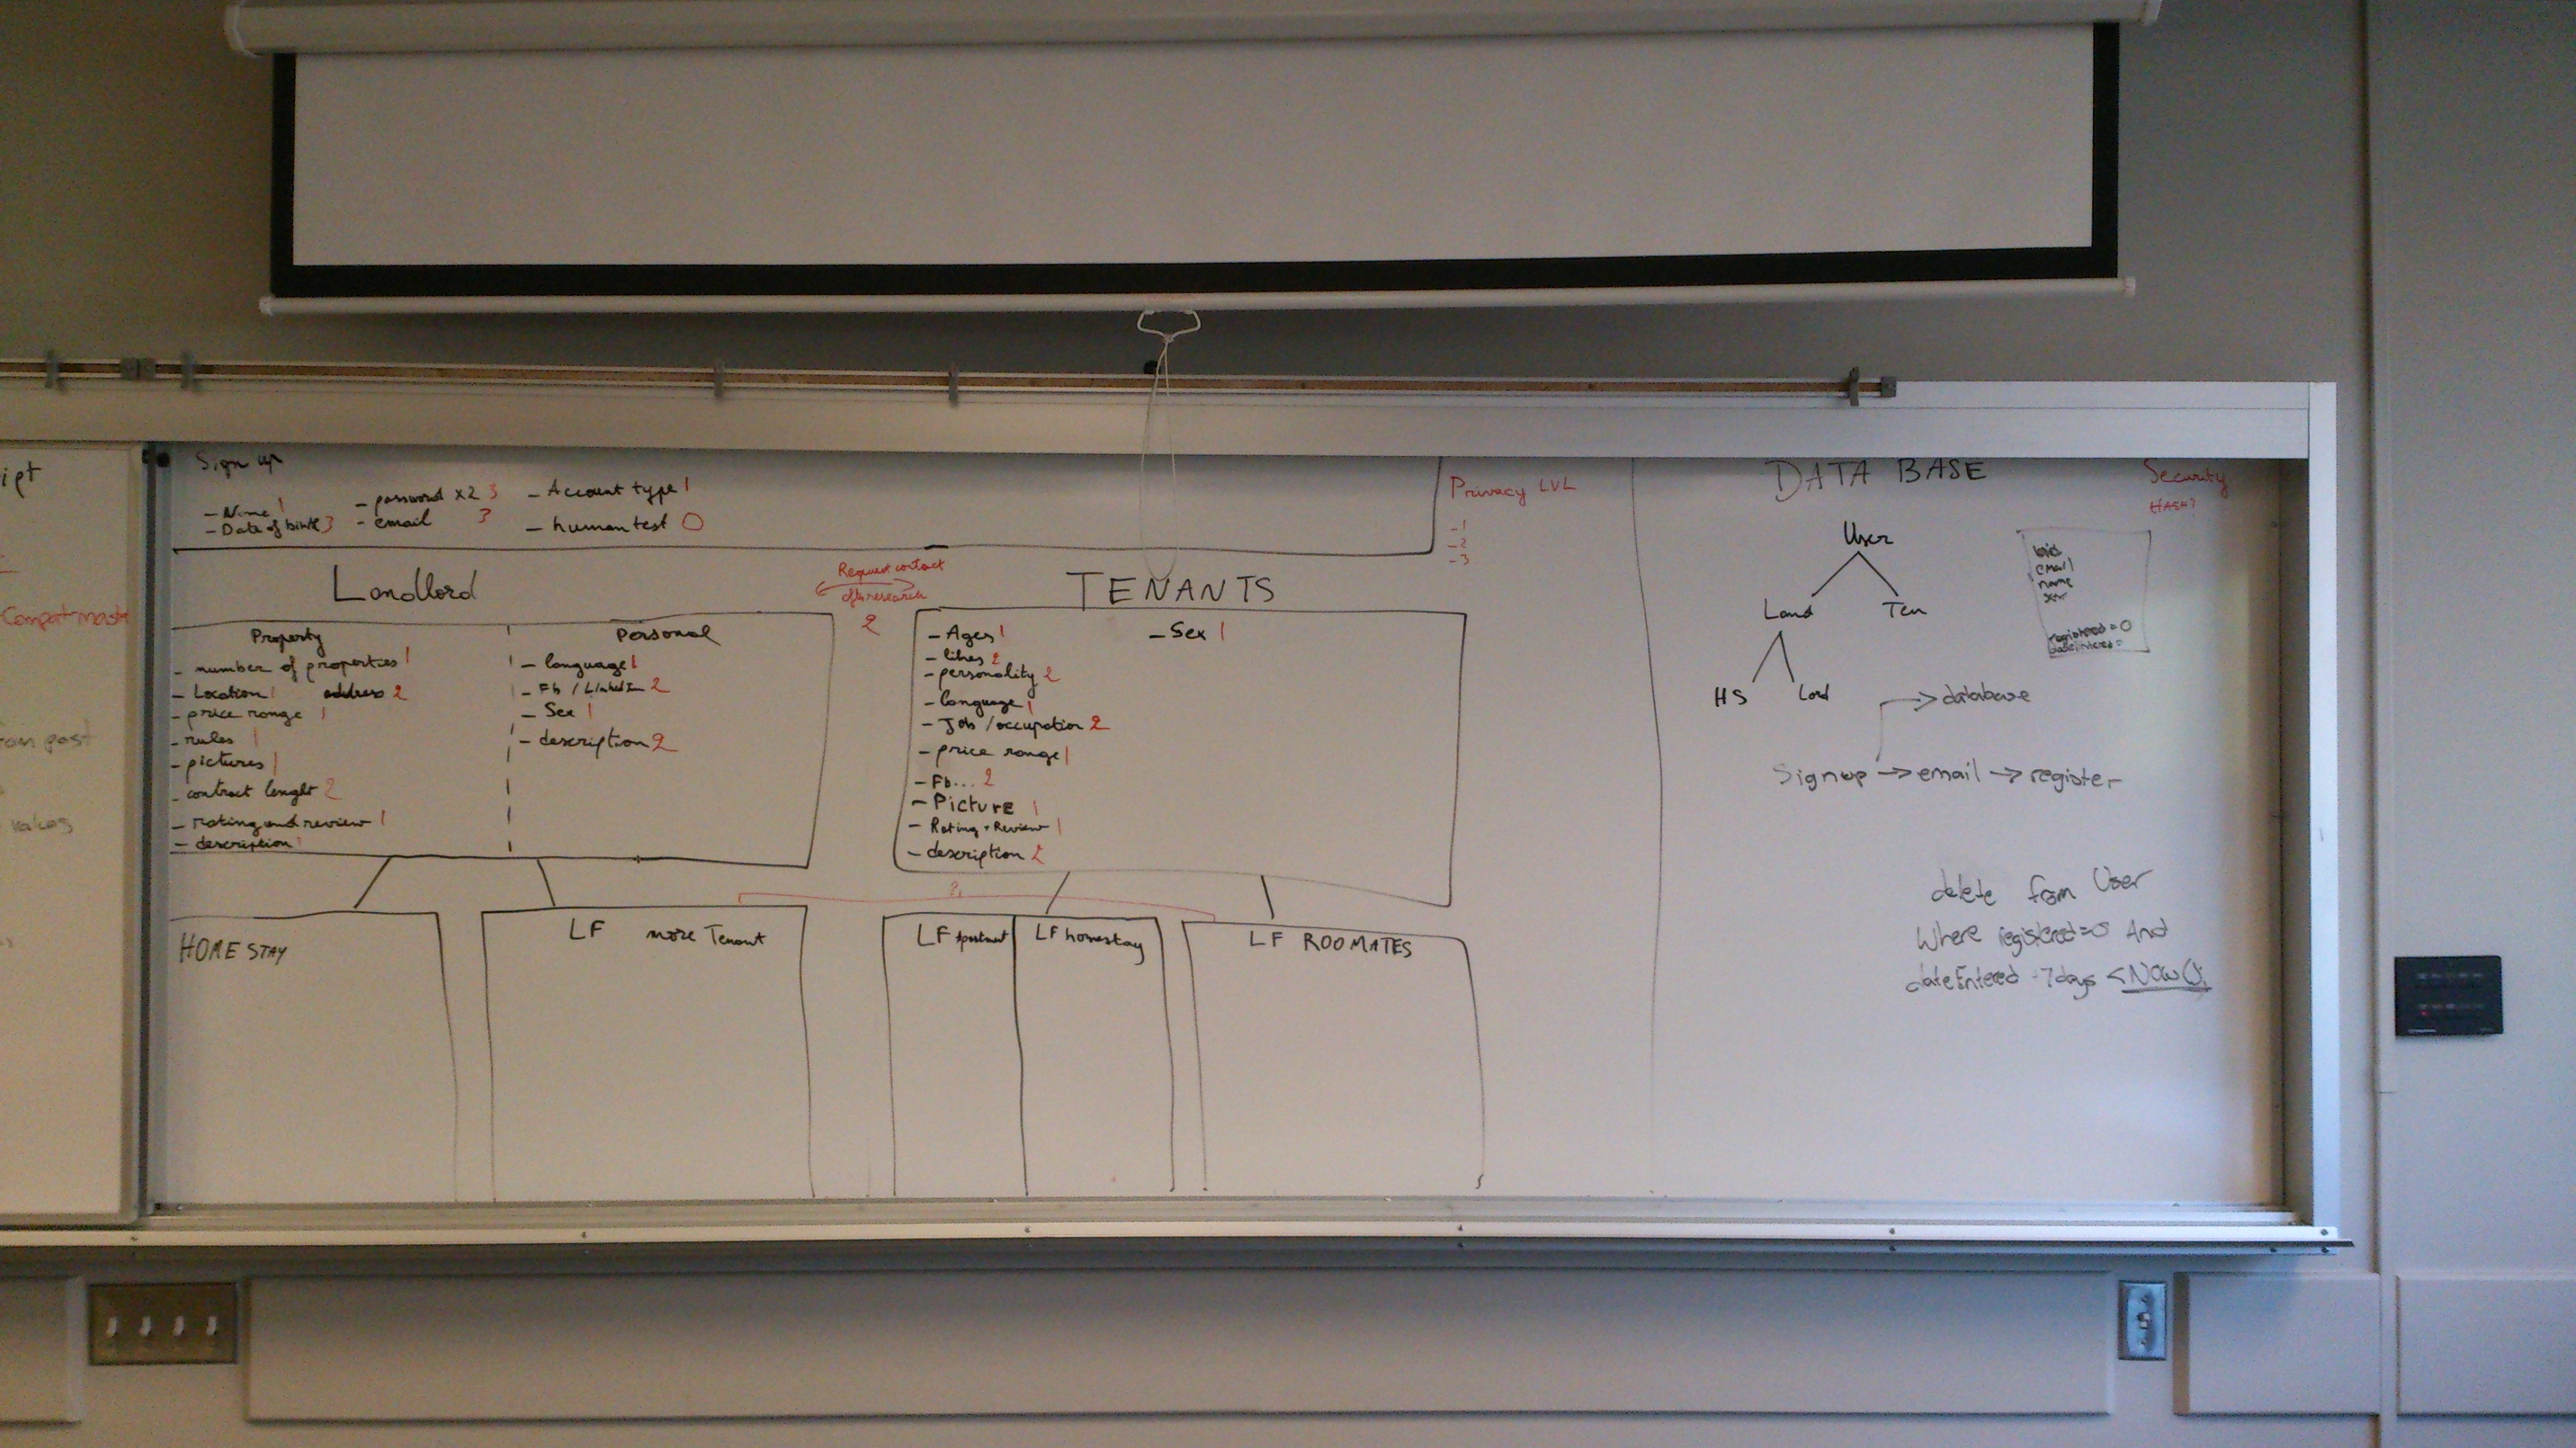 ipt
Compat
om past
Sign up
- Name 1
- Date of birth 3
- password x2 3
- email 3
- Account type 1
- human test 0
Privacy LVL
- 1
- 2
- 3
Landlord
Request contact
research
2
TENANTS
Property
- number of properties 1
- Location 1 address 2
- price range 1
- rules 1
- pictures 1
- contract lenght 2
- rating and review 1
- description 1
Personal
- language 1
- Fb / LinkedIn 2
- Sex 1
- description 2
- Ages 1
- likes 2
- personality 2
- language 1
- Job / occupation 2
- price range 1
- Fb... 2
- Picture 1
- Rating + Review 1
- description 2
- Sex 1
HOMESTAY
LF more Tenant
LF Apartment
LF homestay
LF ROOMATES
DATA BASE
Security
HASH?
User
Land Ten
HS Lord
email
name
sex
registered = 0
dateEntered =
→ database
Signup → email → register
delete from User
Where registered=0 And
dateEntered - 7days < NOW();